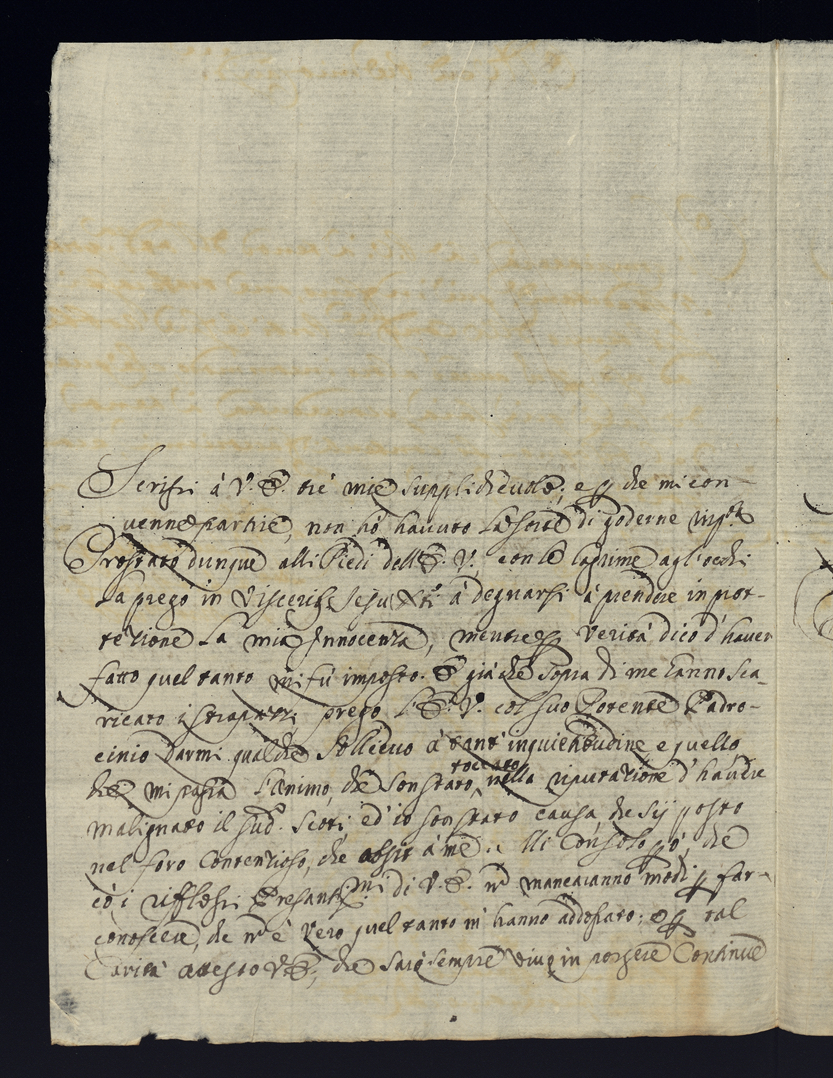 Scrissi à V. E. trè mie supplichevole, e p che mi con-
venne partire, non hò havuto la sorte di goderne risp.ta
Prostrato dunque alli Piedi dell'E. V. con le lagrime agl'occhi
La prego in Visceribs Jesu Xti à degnarsi à prendere in prot-
tezione La mia Innocenza, mentre p verità dico d'haver
fatto quel tanto mi fù imposto. E già che sopra di me hanno sca-
ricato i strapazzi, prego L'E. V. col suo Potente Padro-
cinio darmi qualche Sollievo à tant' inquietudine e quello
che mi passa l'animo, che son stato toccato nella riputazione d'havere
malignato il sud.o Scoti, ed' io son stato causa che sij posto
nel foro Contenzioso, che absit à me. Mi consolo però, che
cò i riflessi Presantis.mi di V. E. nō mancaranno modi p far-
conoscere, che nō è Vero quel tanto m' hanno addossato; e p tal
Carità attesto V. E., che sarò sempre vivo in porgere Continue